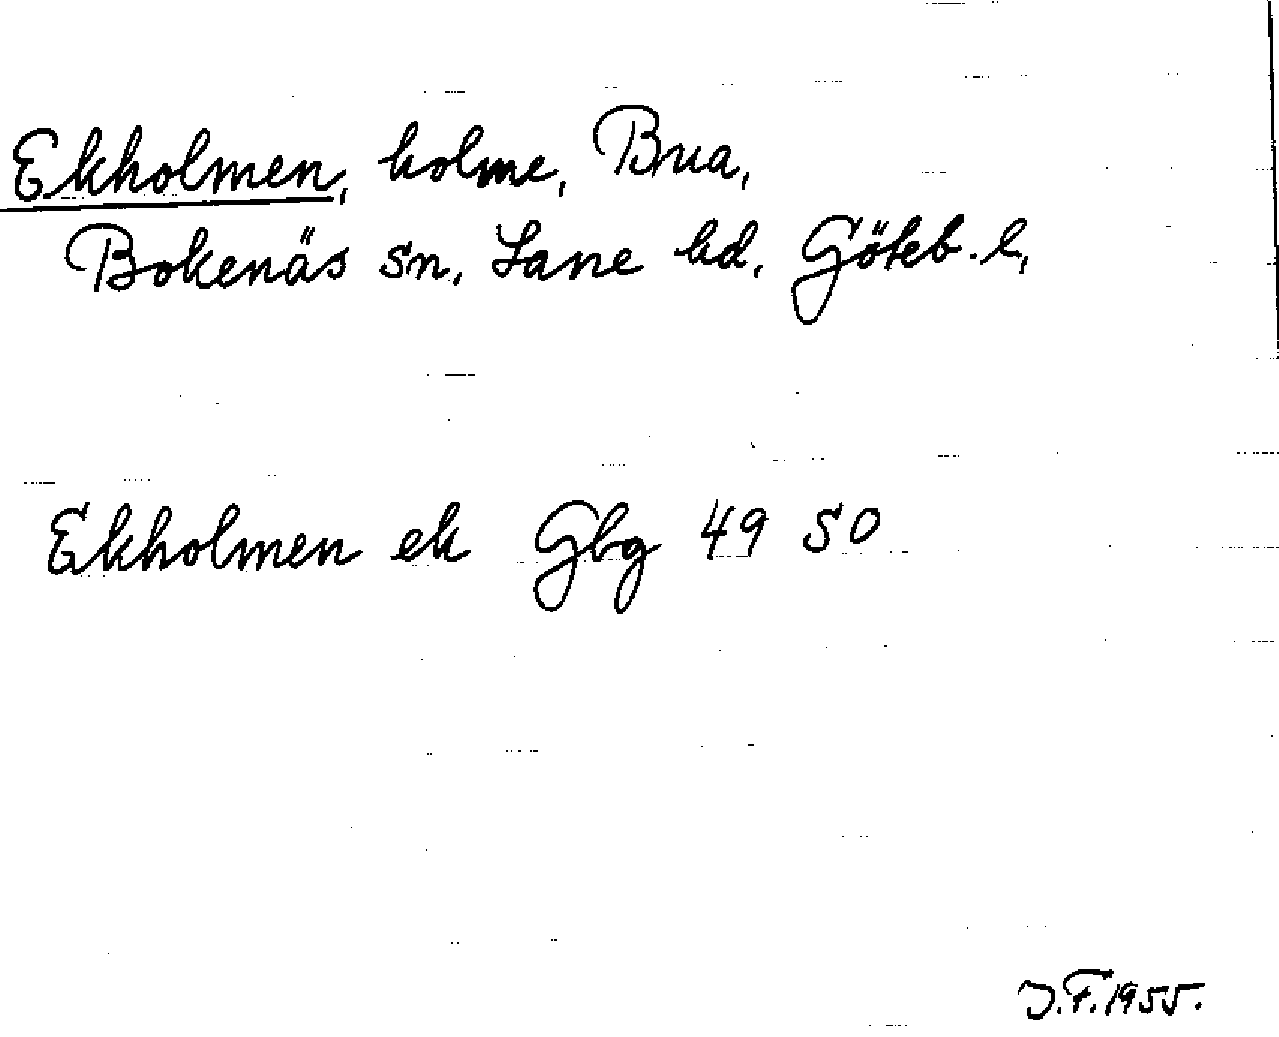 Ekholmen, holme, Brua,
Bokenäs sn, Lane hd, Göteb. l,
Ekholmen ek Gbg 49 50
J.F. 1955.